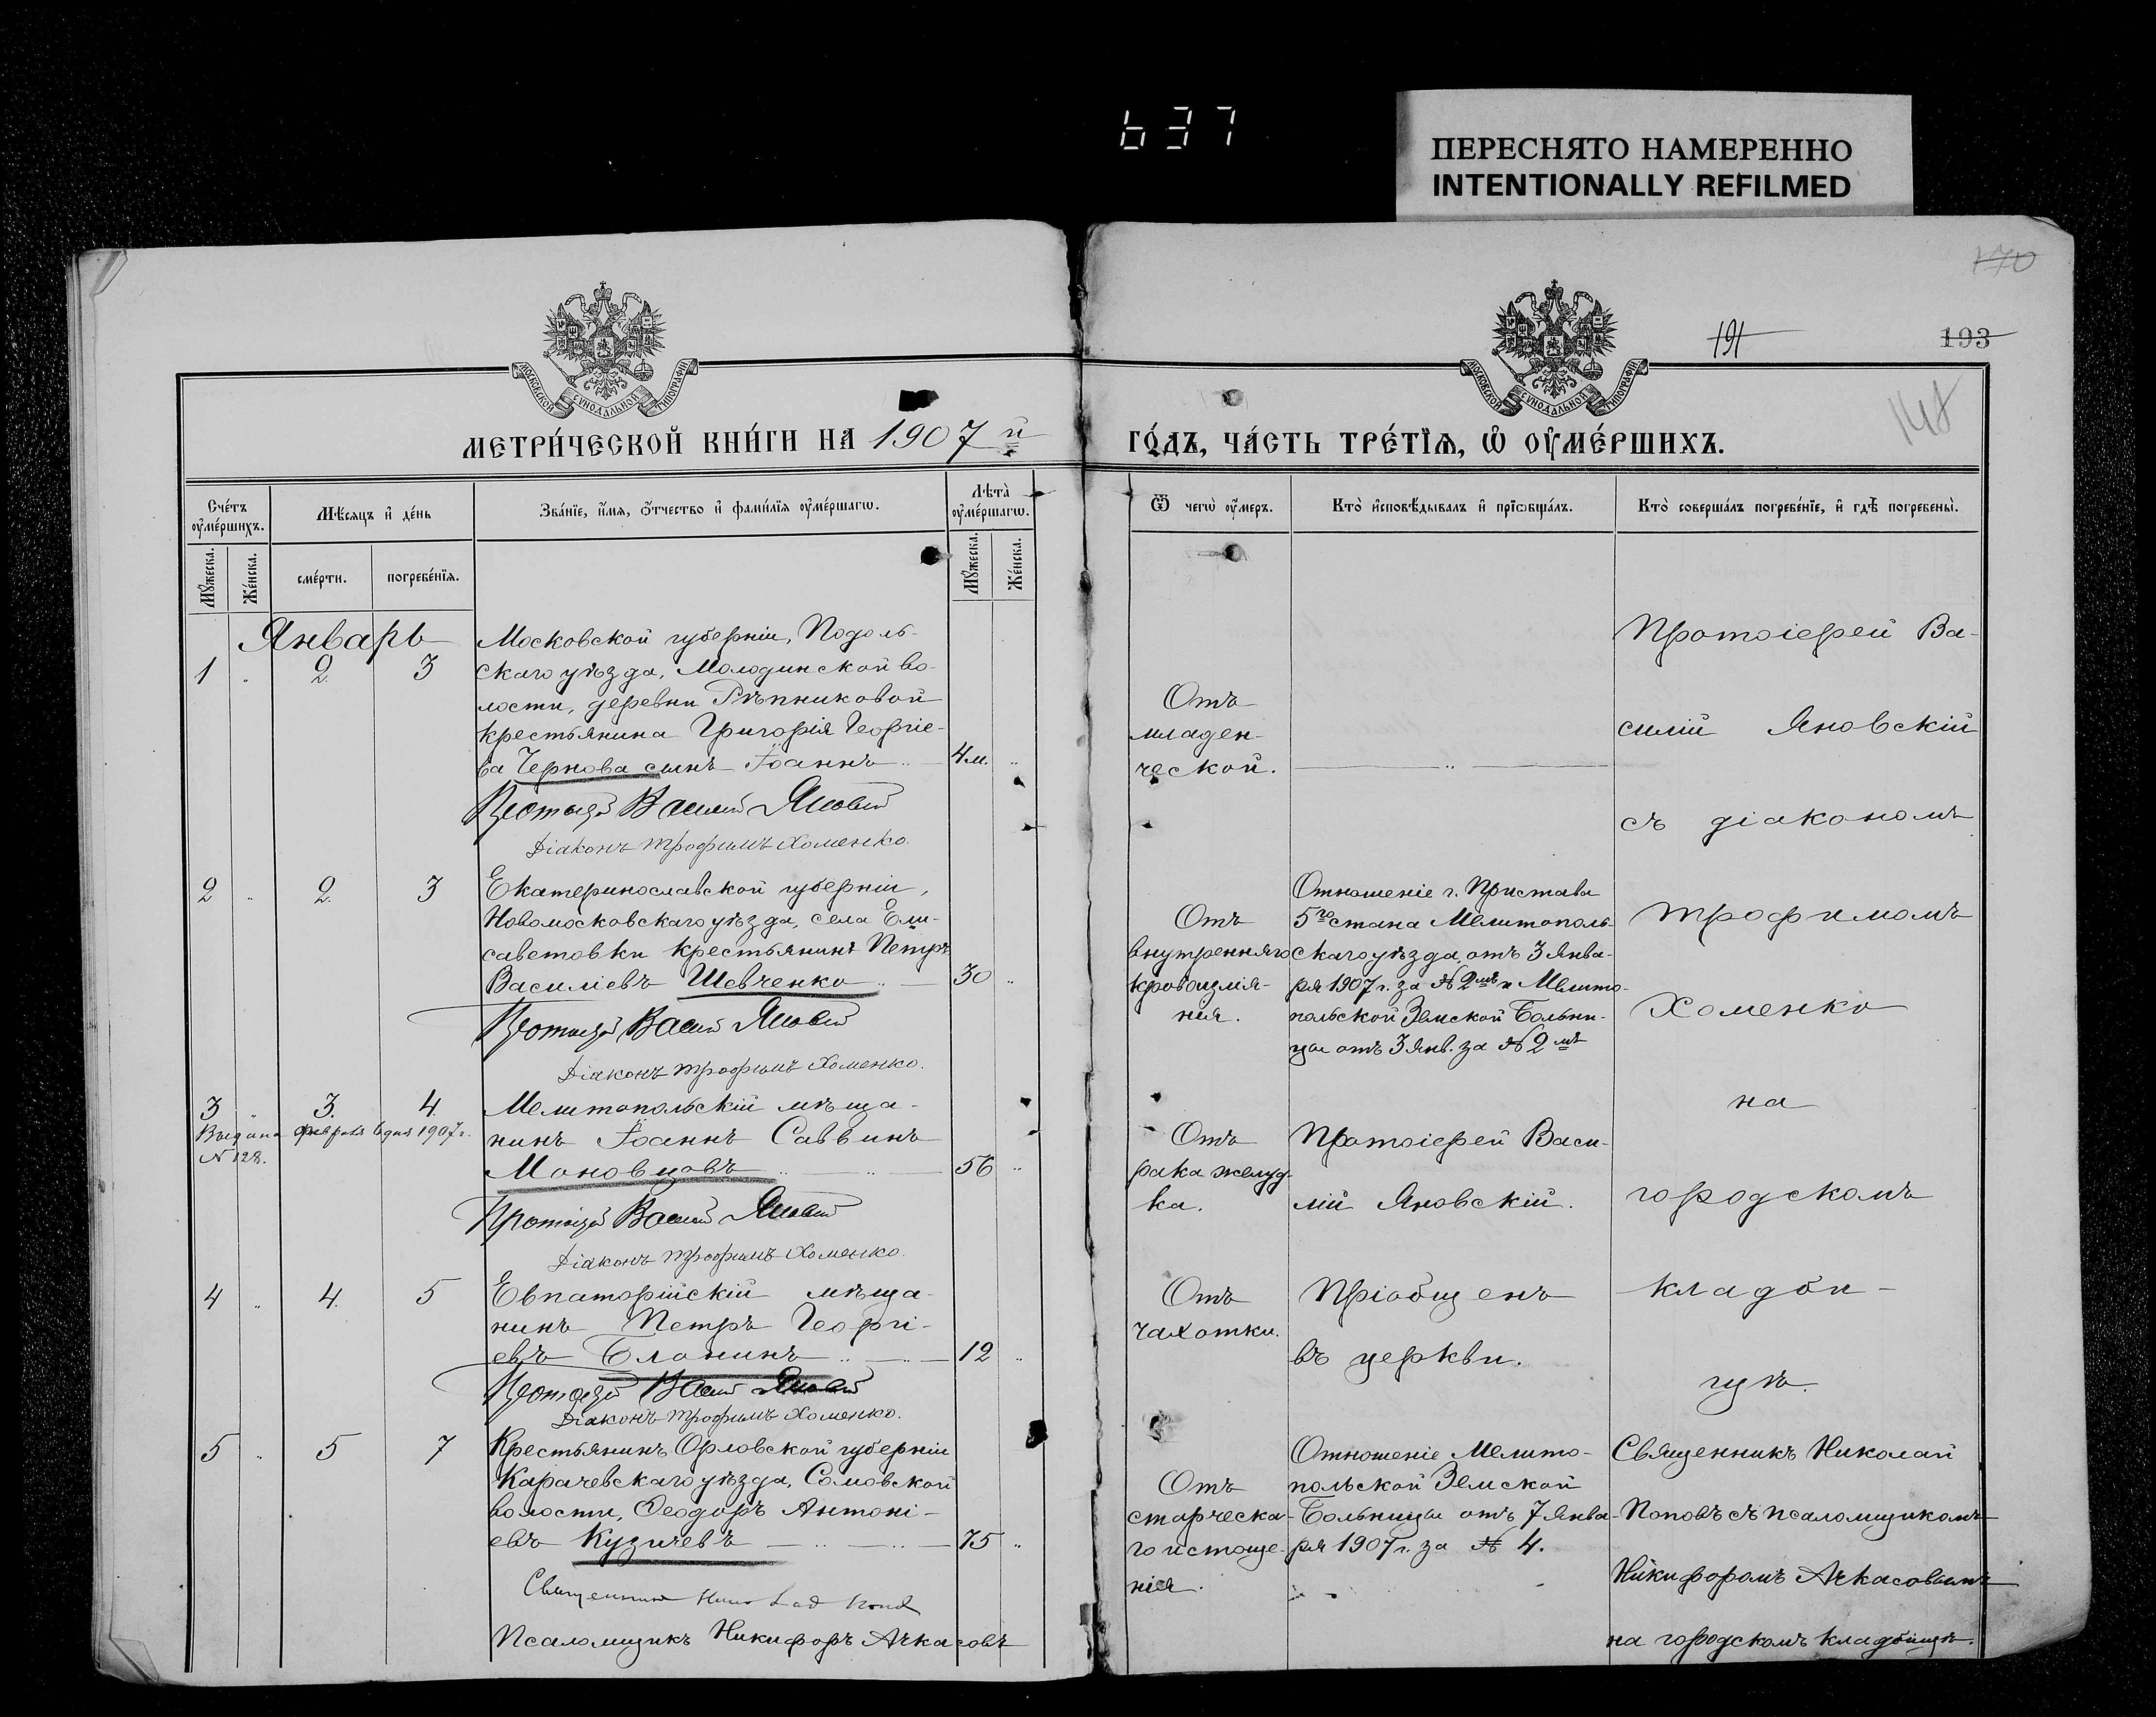 637
ПЕРЕСНЯТО НАМЕРЕННО
INTENTIONALLY REFILMED
170
191
193
148
МОСКОВСКОЙ СУНОДАЛЬНОЙ ТИПОГРАФІИ
МОСКОВСКОЙ СУНОДАЛЬНОЙ ТИПОГРАФІИ
МЕТРИ́ЧЕСКОЙ КНИ́ГИ НА 1907й
ГО́ДЪ, ЧА́СТЬ ТРЕ́ТЇѦ, Ѡ҆ ОУ҆МЕ́РШИХЪ.
Сче́тъ оу҆ме́ршихъ.
Мѣ́сяцъ и҆ де́нь
Зва́нїе, и҆́мѧ, ѻ҆́тчество и҆ фами́лїѧ оу҆ме́ршагѡ.
Лѣта̀ оу҆ме́ршагѡ.
Ѿ чегѡ̀ оу҆́меръ.
Кто̀ и҆сповѣ́дывалъ и҆ прїѡбща́лъ.
Кто̀ соверша́лъ погребе́нїе, и҆ гдѣ̀ погребены̀.
Мꙋ́жеска.
Же́нска.
сме́рти.
погребе́нїѧ.
Мꙋ́жеска.
Же́нска.
Январь
1 " 2. 3
Московской губерніи, Подоль-
скаго уѣзда, Молодинской во-
лости, деревни Рѣпниковой
крестьянина Григорія Георгіе-
ва Чернова сынъ Іоаннъ 4 м. "
Протоіерей Василій Яновскій
Діаконъ Трофимъ Хоменко.
Отъ
младен-
ческой.
Протоіерей Ва-
силій Яновскій
съ діакономъ
2 " 2. 3
Екатеринославской губерніи,
Новомосковскаго уѣзда, села Ели-
саветовки крестьянинъ Петръ
Василіевъ Шевченко 30 "
Протоіерей Василій Яновскій
Діаконъ Трофимъ Хоменко.
Отъ
внутренняго
кровоизлія-
нія.
Отношеніе г. Пристава
5го стана Мелитополь-
скаго уѣзда, отъ 3 Янва-
ря 1907 г. за № 2мъ и Мелито-
польской Земской Больни-
цы отъ 3 Янв. за № 2мъ
Трофимомъ
Хоменко
3 " 3. 4.
Выдана февраля 6 дня 1907 г.
№ 128.
Мелитопольскій мѣща-
нинъ Іоаннъ Саввинъ
Моновцовъ 56 "
Протоіерей Василій Яновскій
Діаконъ Трофимъ Хоменко.
Отъ
рака желуд-
ка.
Протоіерей Васи-
лій Яновскій.
на
городскомъ
4 " 4. 5
Евпаторійскій мѣща-
нинъ Петръ Георгі-
евъ Бланинъ 12 "
Протоіерей Василій Яновскій
Діаконъ Трофимъ Хоменко.
Отъ
чахотки.
Пріобщенъ
въ церкви.
кладби-
щѣ.
5 " 5 7
Крестьянинъ Орловской губерніи
Карачевскаго уѣзда, Сомовской
волости, Ѳеодоръ Антоні-
евъ Кузичевъ 75 "
Священникъ Николай Поповъ
Псаломщикъ Никифоръ Ачкасовъ
Отъ
старческа-
го истоще-
нія.
Отношеніе Мелито-
польской Земской
Больницы отъ 7 Янва-
ря 1907 г. за № 4.
Священникъ Николай
Поповъ съ псаломщикомъ
Никифоромъ Ачкасовымъ
на городскомъ кладбищѣ.